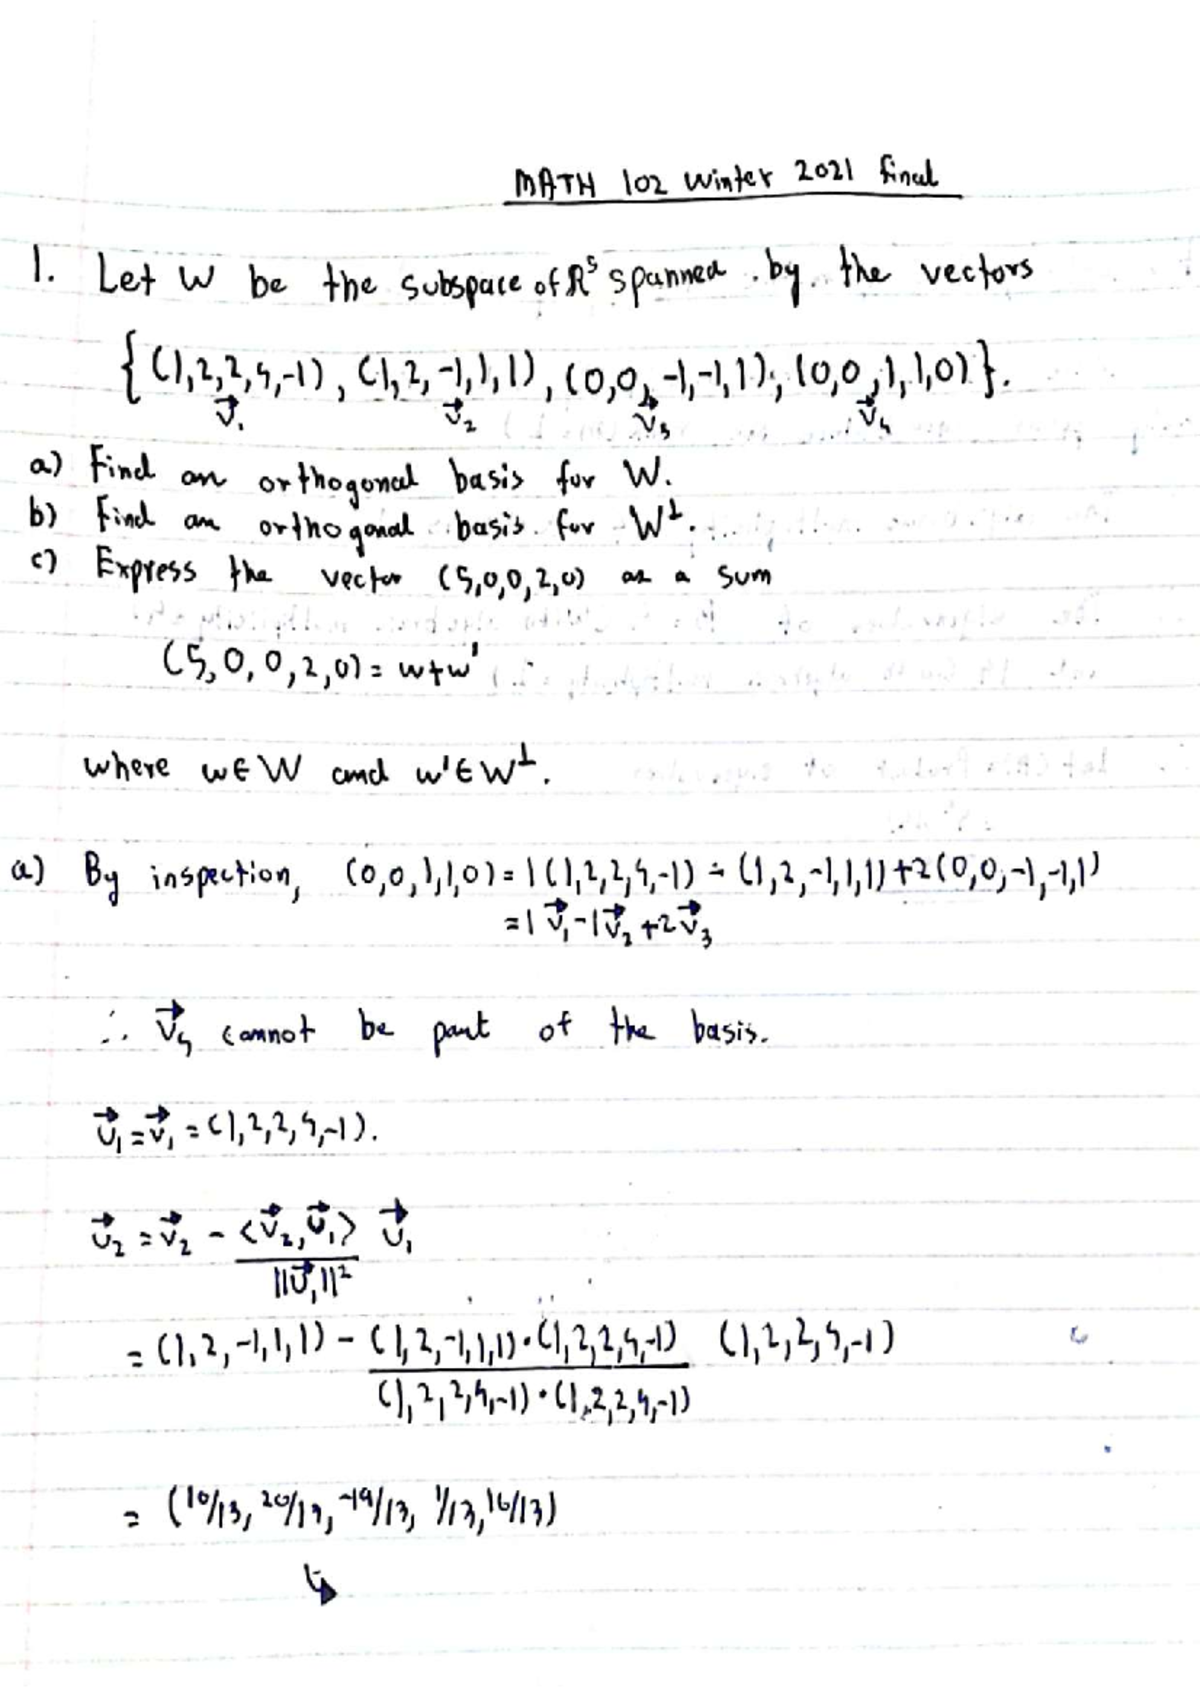 MATH 102 Winter 2021 final
1. Let W be the subspace of R⁵ spanned by the vectors
{(1,2,2,4,-1), (1,2,-1,1,1), (0,0,-1,-1,1), (0,0,1,1,0)}.
v⃗₁ v⃗₂ v⃗₃ v⃗₄
a) Find an orthogonal basis for W.
b) Find an orthogonal basis for W⊥.
c) Express the vector (5,0,0,2,0) as a sum
(5,0,0,2,0) = w+w'
where w∈W and w'∈W⊥.
a) By inspection, (0,0,1,1,0) = 1(1,2,2,4,-1) - (1,2,-1,1,1) + 2(0,0,-1,-1,1)
= 1v⃗₁ - 1v⃗₂ + 2v⃗₃
∴ v⃗₄ cannot be part of the basis.
u⃗₁ = v⃗₁ = (1,2,2,4,-1).
u⃗₂ = v⃗₂ - <v⃗₂, u⃗₁> u⃗₁
||u⃗₁||²
= (1,2,-1,1,1) - (1,2,-1,1,1)•(1,2,2,4,-1) (1,2,2,4,-1)
(1,2,2,4,-1)•(1,2,2,4,-1)
= (10/13, 20/13, -19/13, 1/13, 16/13)